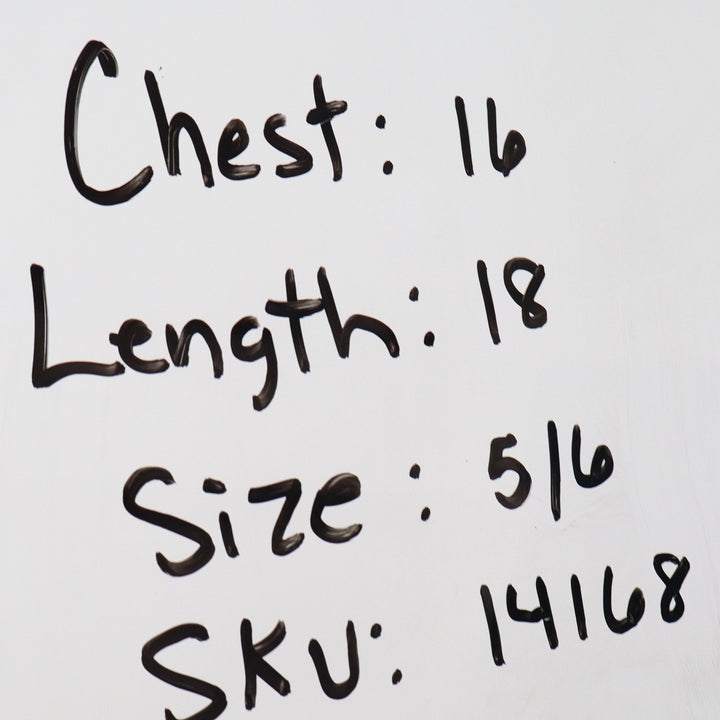 Chest: 16
Length: 18
Size: 5/6
SKU: 14168